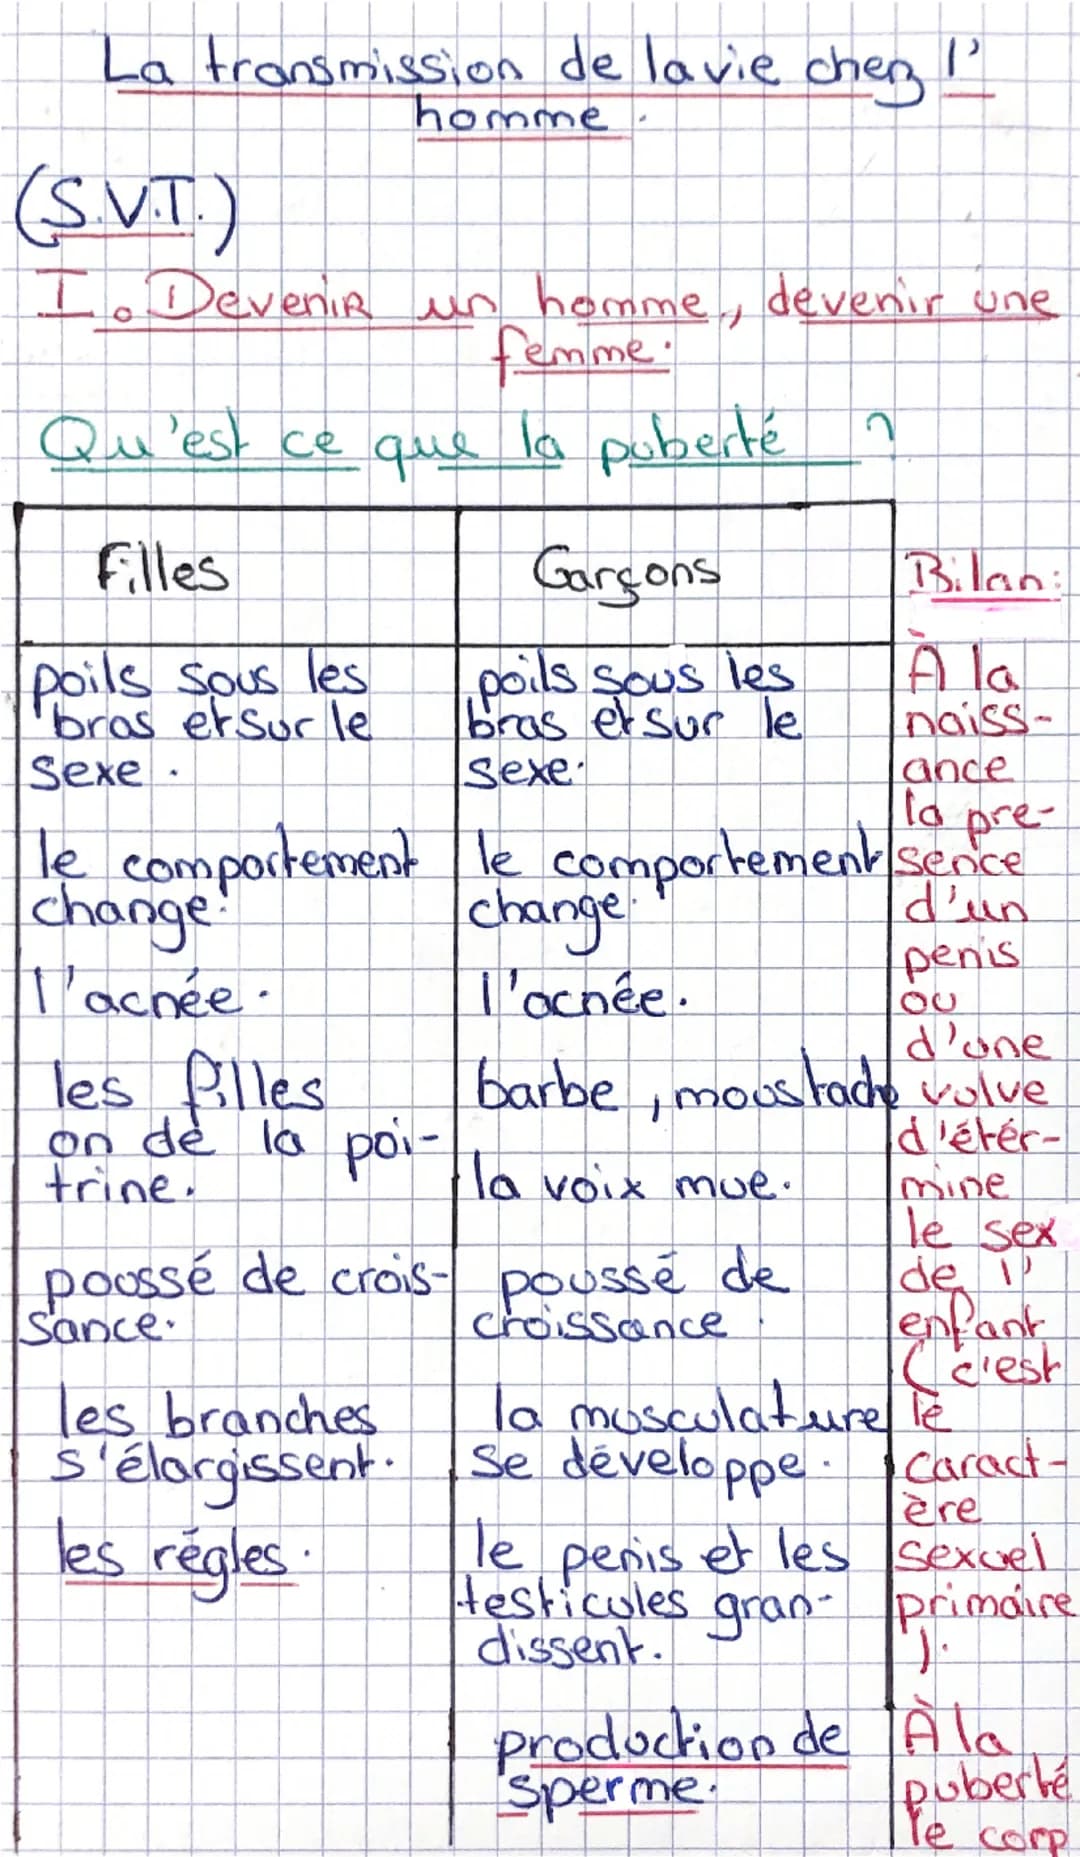 La transmission de la vie chez l'
homme.
(S.V.T.)
I. Devenir un homme, devenir une
femme.
Qu'est ce que la puberté ?
Filles
poils sous les
bras et sur le
sexe.
le comportement
change.
l'acnée.
les filles
on de la poi-
trine.
poussé de crois-
sance.
les branches
s'élargissent.
les régles.
Garçons
poils sous les
bras et sur le
sexe.
le comportement
change.
l'acnée.
barbe, moustache
la voix mue.
poussé de
croissance.
la musculature
se développe.
le penis et les
testicules gran-
dissent.
production de
sperme.
Bilan:
À la
naiss-
ance
la pre-
sence
d'un
penis
ou
d'une
vulve
d'étér-
mine
le sex
de l'
enfant
(c'est
le
caract-
ère
sexuel
primaire
).
À la
puberté
le corp